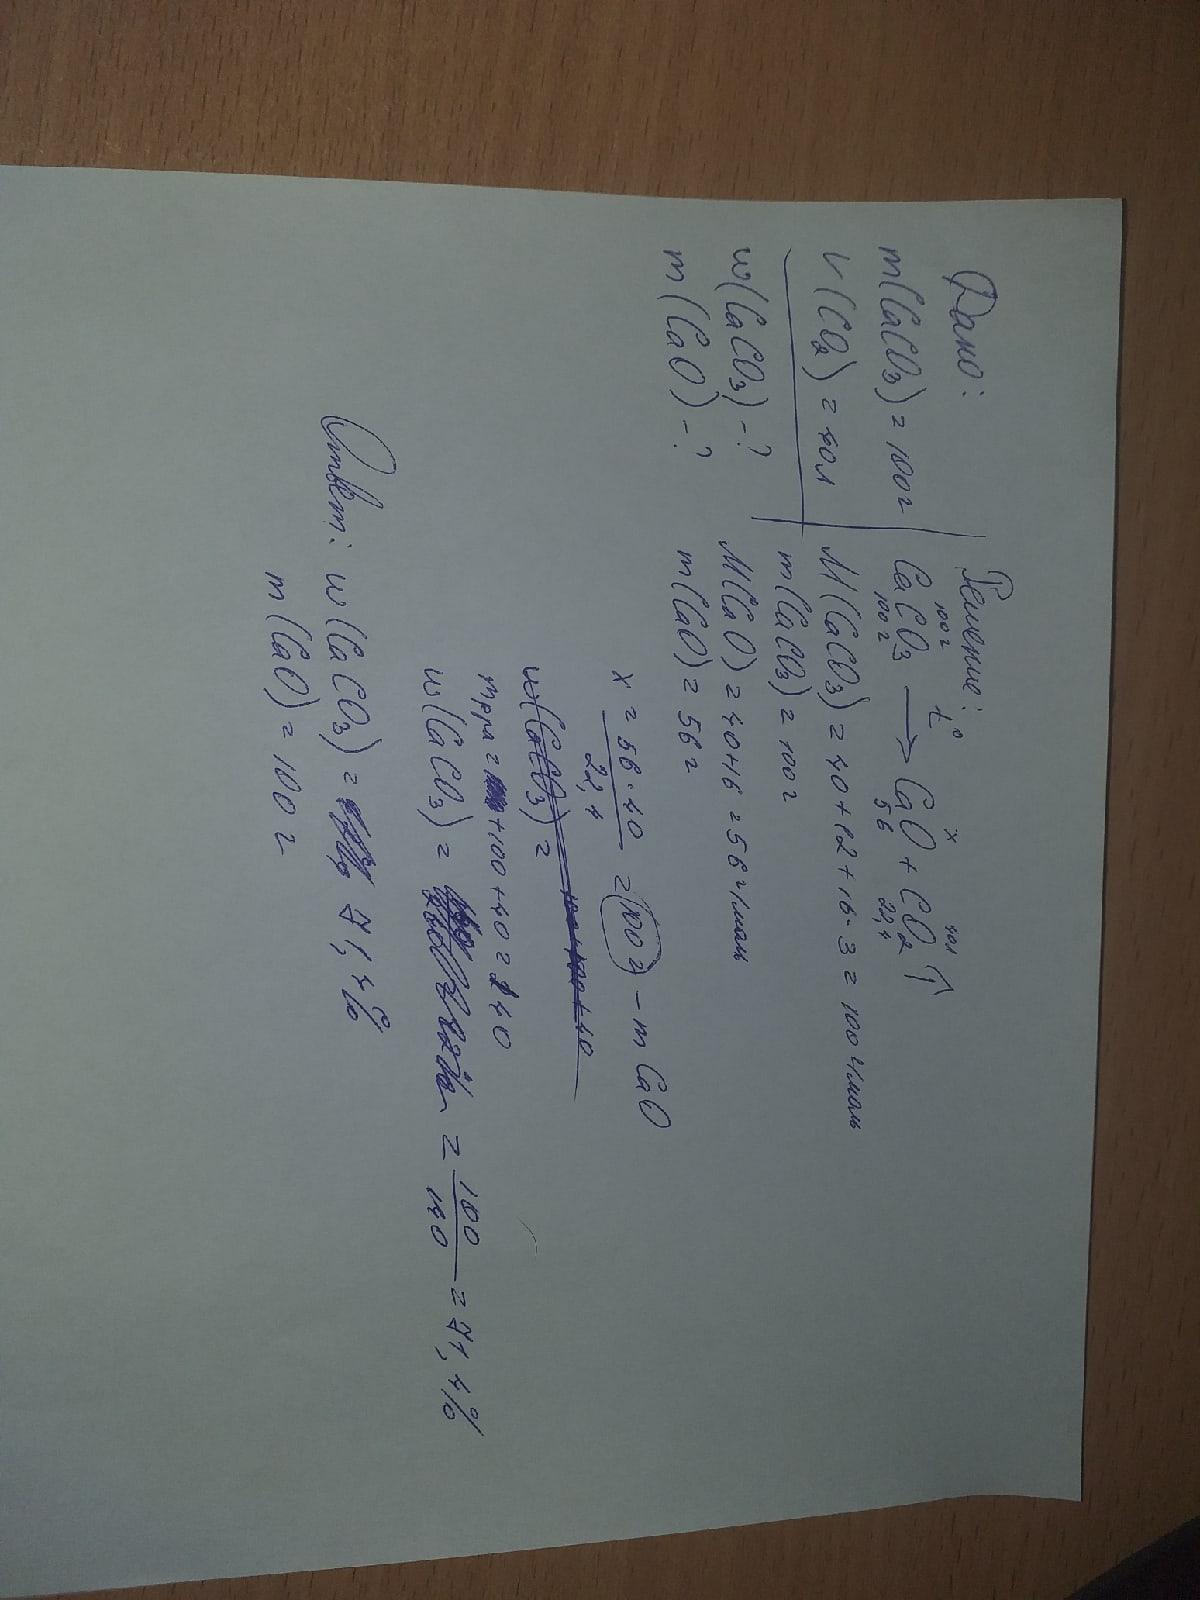 Дано:
m(CaCO3) = 100г
V(CO2) = 40л
w(CaCO3) - ?
m(CaO) - ?
Решение:
100г x 40л
CaCO3 t° → CaO + CO2 ↑
100г 56 22,4
M(CaCO3) = 40 + 12 + 16 · 3 = 100 г/моль
m(CaCO3) = 100г
M(CaO) = 40+16 = 56 г/моль
m(CaO) = 56г
x = 56 · 40 / 22,4 = 100г - m CaO
w(CaCO3) =
mр-ра = +100 + 40 = 140
w(CaCO3) = = 100 / 140 = 71,4%
Ответ: w(CaCO3) = 71,4%
m(CaO) = 100г